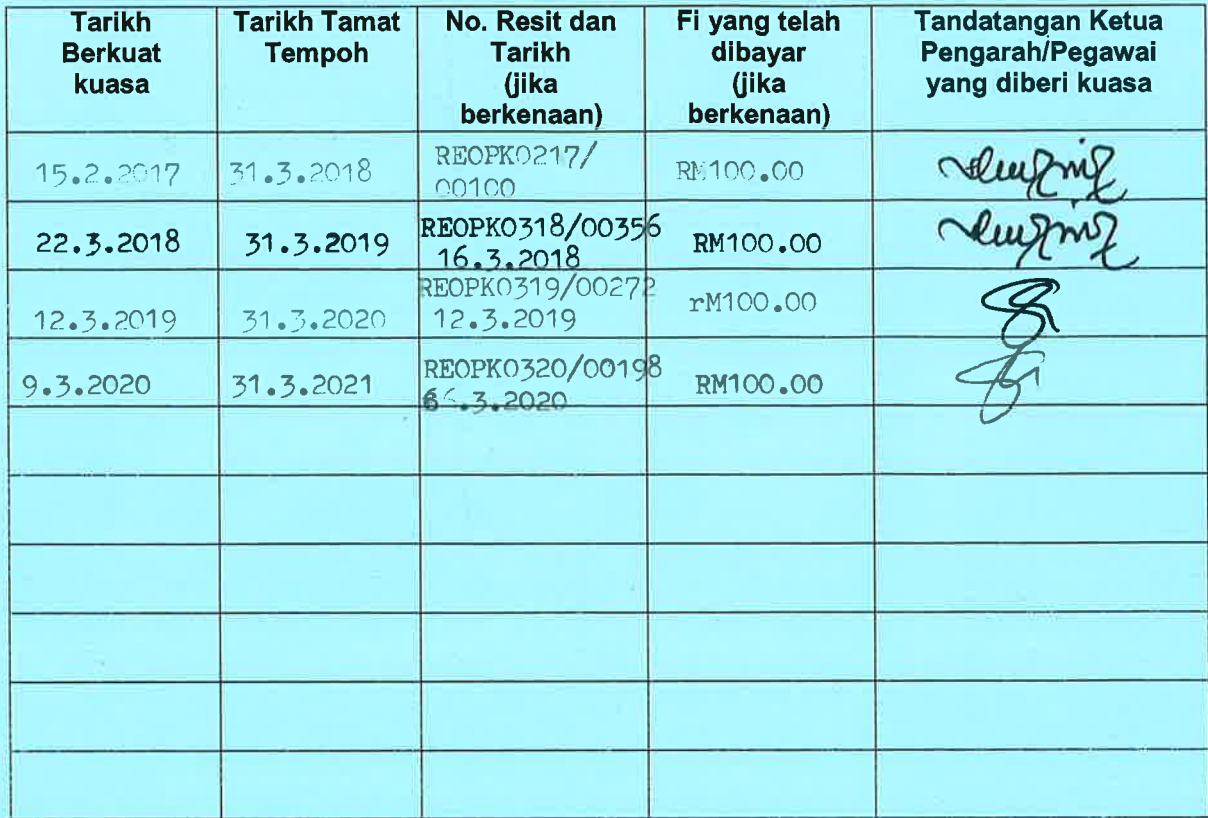 Tarikh
Berkuat
kuasa
Tarikh Tamat
Tempoh
No. Resit dan
Tarikh
(jika
berkenaan)
Fi yang telah
dibayar
(jika
berkenaan)
Tandatangan Ketua
Pengarah/Pegawai
yang diberi kuasa
15.2.2017 31.3.2018 REOPK0217/
00100
RM100.00
22.3.2018 31.3.2019 REOPK0318/00356
16.3.2018
RM100.00
12.3.2019 31.3.2020 REOPK0319/00272
12.3.2019
rM100.00
9.3.2020 31.3.2021 REOPK0320/00198
.3.2020
RM100.00